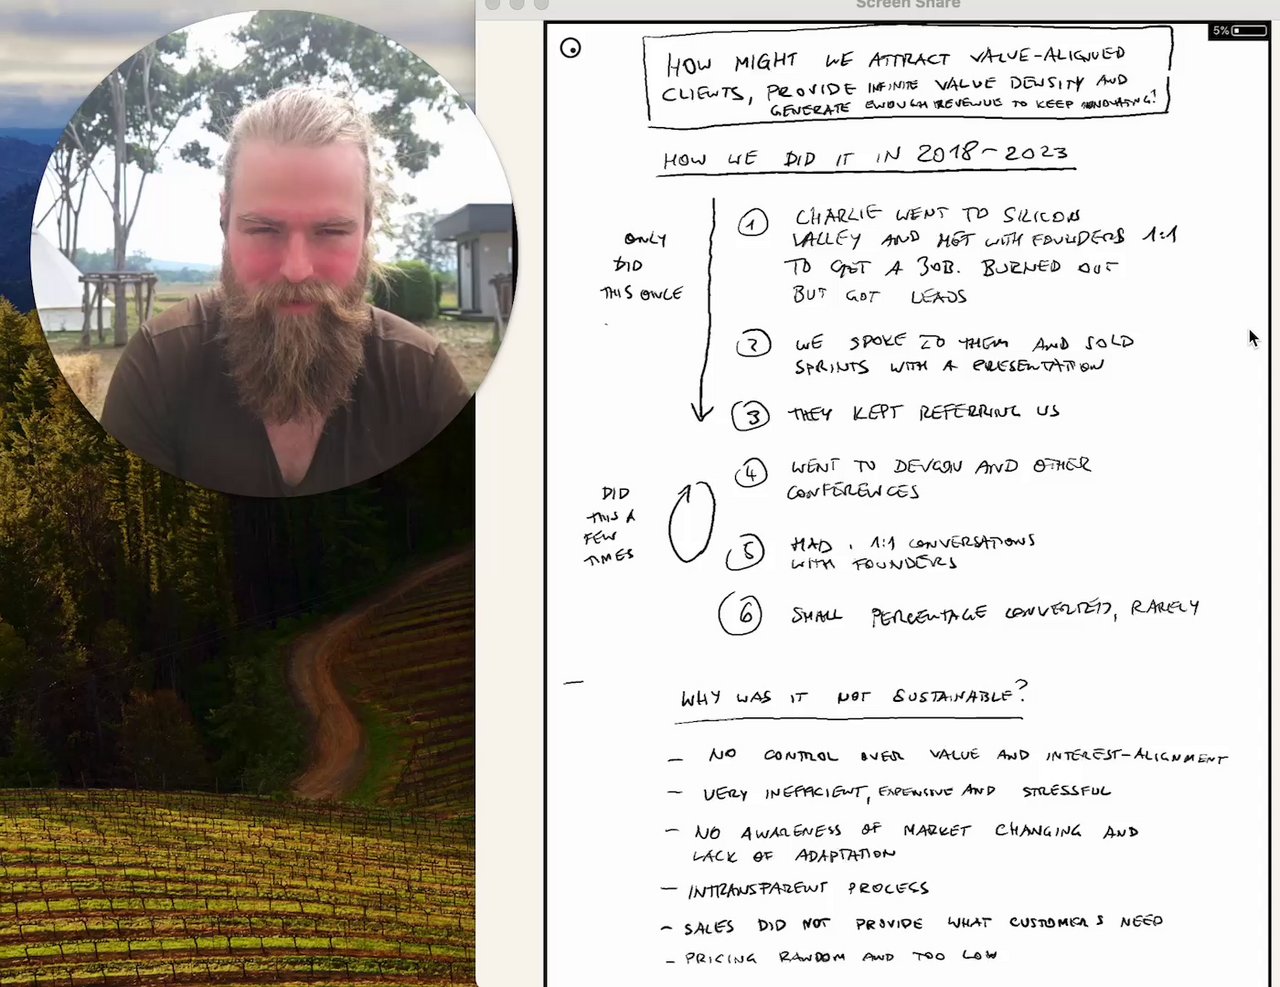 Screen Share
5%
HOW MIGHT WE ATTRACT VALUE-ALIGNED
CLIENTS, PROVIDE INFINITE VALUE DENSITY AND
GENERATE ENOUGH REVENUE TO KEEP INNOVATING?
HOW WE DID IT IN 2018-2023
ONLY
DID
THIS ONCE
1 CHARLIE WENT TO SILICON
VALLEY AND MET WITH FOUNDERS 1:1
TO GET A JOB. BURNED OUT
BUT GOT LEADS
2 WE SPOKE TO THEM AND SOLD
SPRINTS WITH A PRESENTATION
3 THEY KEPT REFERRING US
DID
THIS A
FEW
TIMES
4 WENT TO DEVCON AND OTHER
CONFERENCES
5 HAD 1:1 CONVERSATIONS
WITH FOUNDERS
6 SMALL PERCENTAGE CONVERTED, RARELY
WHY WAS IT NOT SUSTAINABLE?
- NO CONTROL OVER VALUE AND INTEREST-ALIGNMENT
- VERY INEFFICIENT, EXPENSIVE AND STRESSFUL
- NO AWARENESS OF MARKET CHANGING AND
LACK OF ADAPTATION
- INTRANSPARENT PROCESS
- SALES DID NOT PROVIDE WHAT CUSTOMERS NEED
- PRICING RANDOM AND TOO LOW